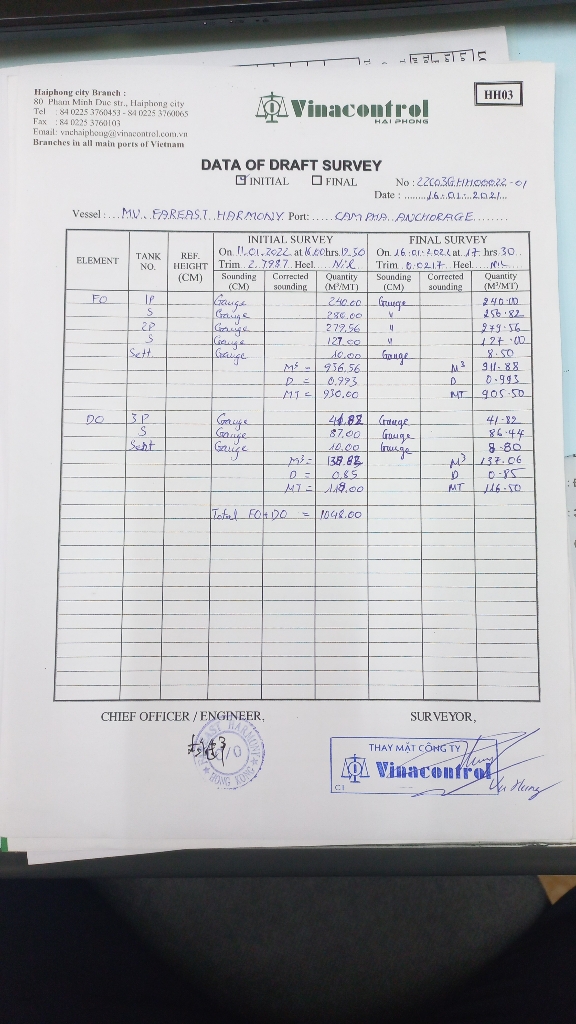 Haiphong city Branch :
80 Pham Minh Duc str., Haiphong city
Tel : 84 0225 3760453 - 84 0225 3760065
Fax : 84 0225 3760103
Email: vnchaiphong@vinacontrol.com.vn
Branches in all main ports of Vietnam
Vinacontrol
HAI PHONG
HH03
DATA OF DRAFT SURVEY
INITIAL FINAL
No : 22C03GHH00022-01
Date : 16.01.2021
Vessel : MV. FAREAST HARMONY Port: CAM PHA ANCHORAGE
ELEMENT TANK NO. REF. HEIGHT (CM) INITIAL SURVEY FINAL SURVEY
On 11.01.2022 at hrs On 16.01.2021 at 17 hrs 30
Trim 2.7987 Heel Nil Trim 0.0217 Heel NIL
Sounding (CM) Corrected sounding Quantity (M³/MT) Sounding (CM) Corrected sounding Quantity (M³/MT)
FO 1P Gauge 240.00 Gauge 240.00
S Gauge 280.00 " 256.82
2P Gauge 279.56 " 279.56
S Gauge 127.00 " 127.00
Sett Gauge 10.00 Gauge 8.50
M³ = 936.56 M³ 911.88
D = 0.993 D 0.993
MT = 930.00 MT 905.50
DO 3P Gauge 41.82 Gauge 41.82
S Gauge 87.00 Gauge 86.44
Sett Gauge 10.00 Gauge 8.80
M³ = M³ 137.06
D = 0.85 D 0.85
MT = 118.00 MT 116.50
Total FO+DO = 1048.00
CHIEF OFFICER / ENGINEER, SURVEYOR,
HONG KONG
THAY MẶT CÔNG TY
Vinacontrol
C1
Vu Hung